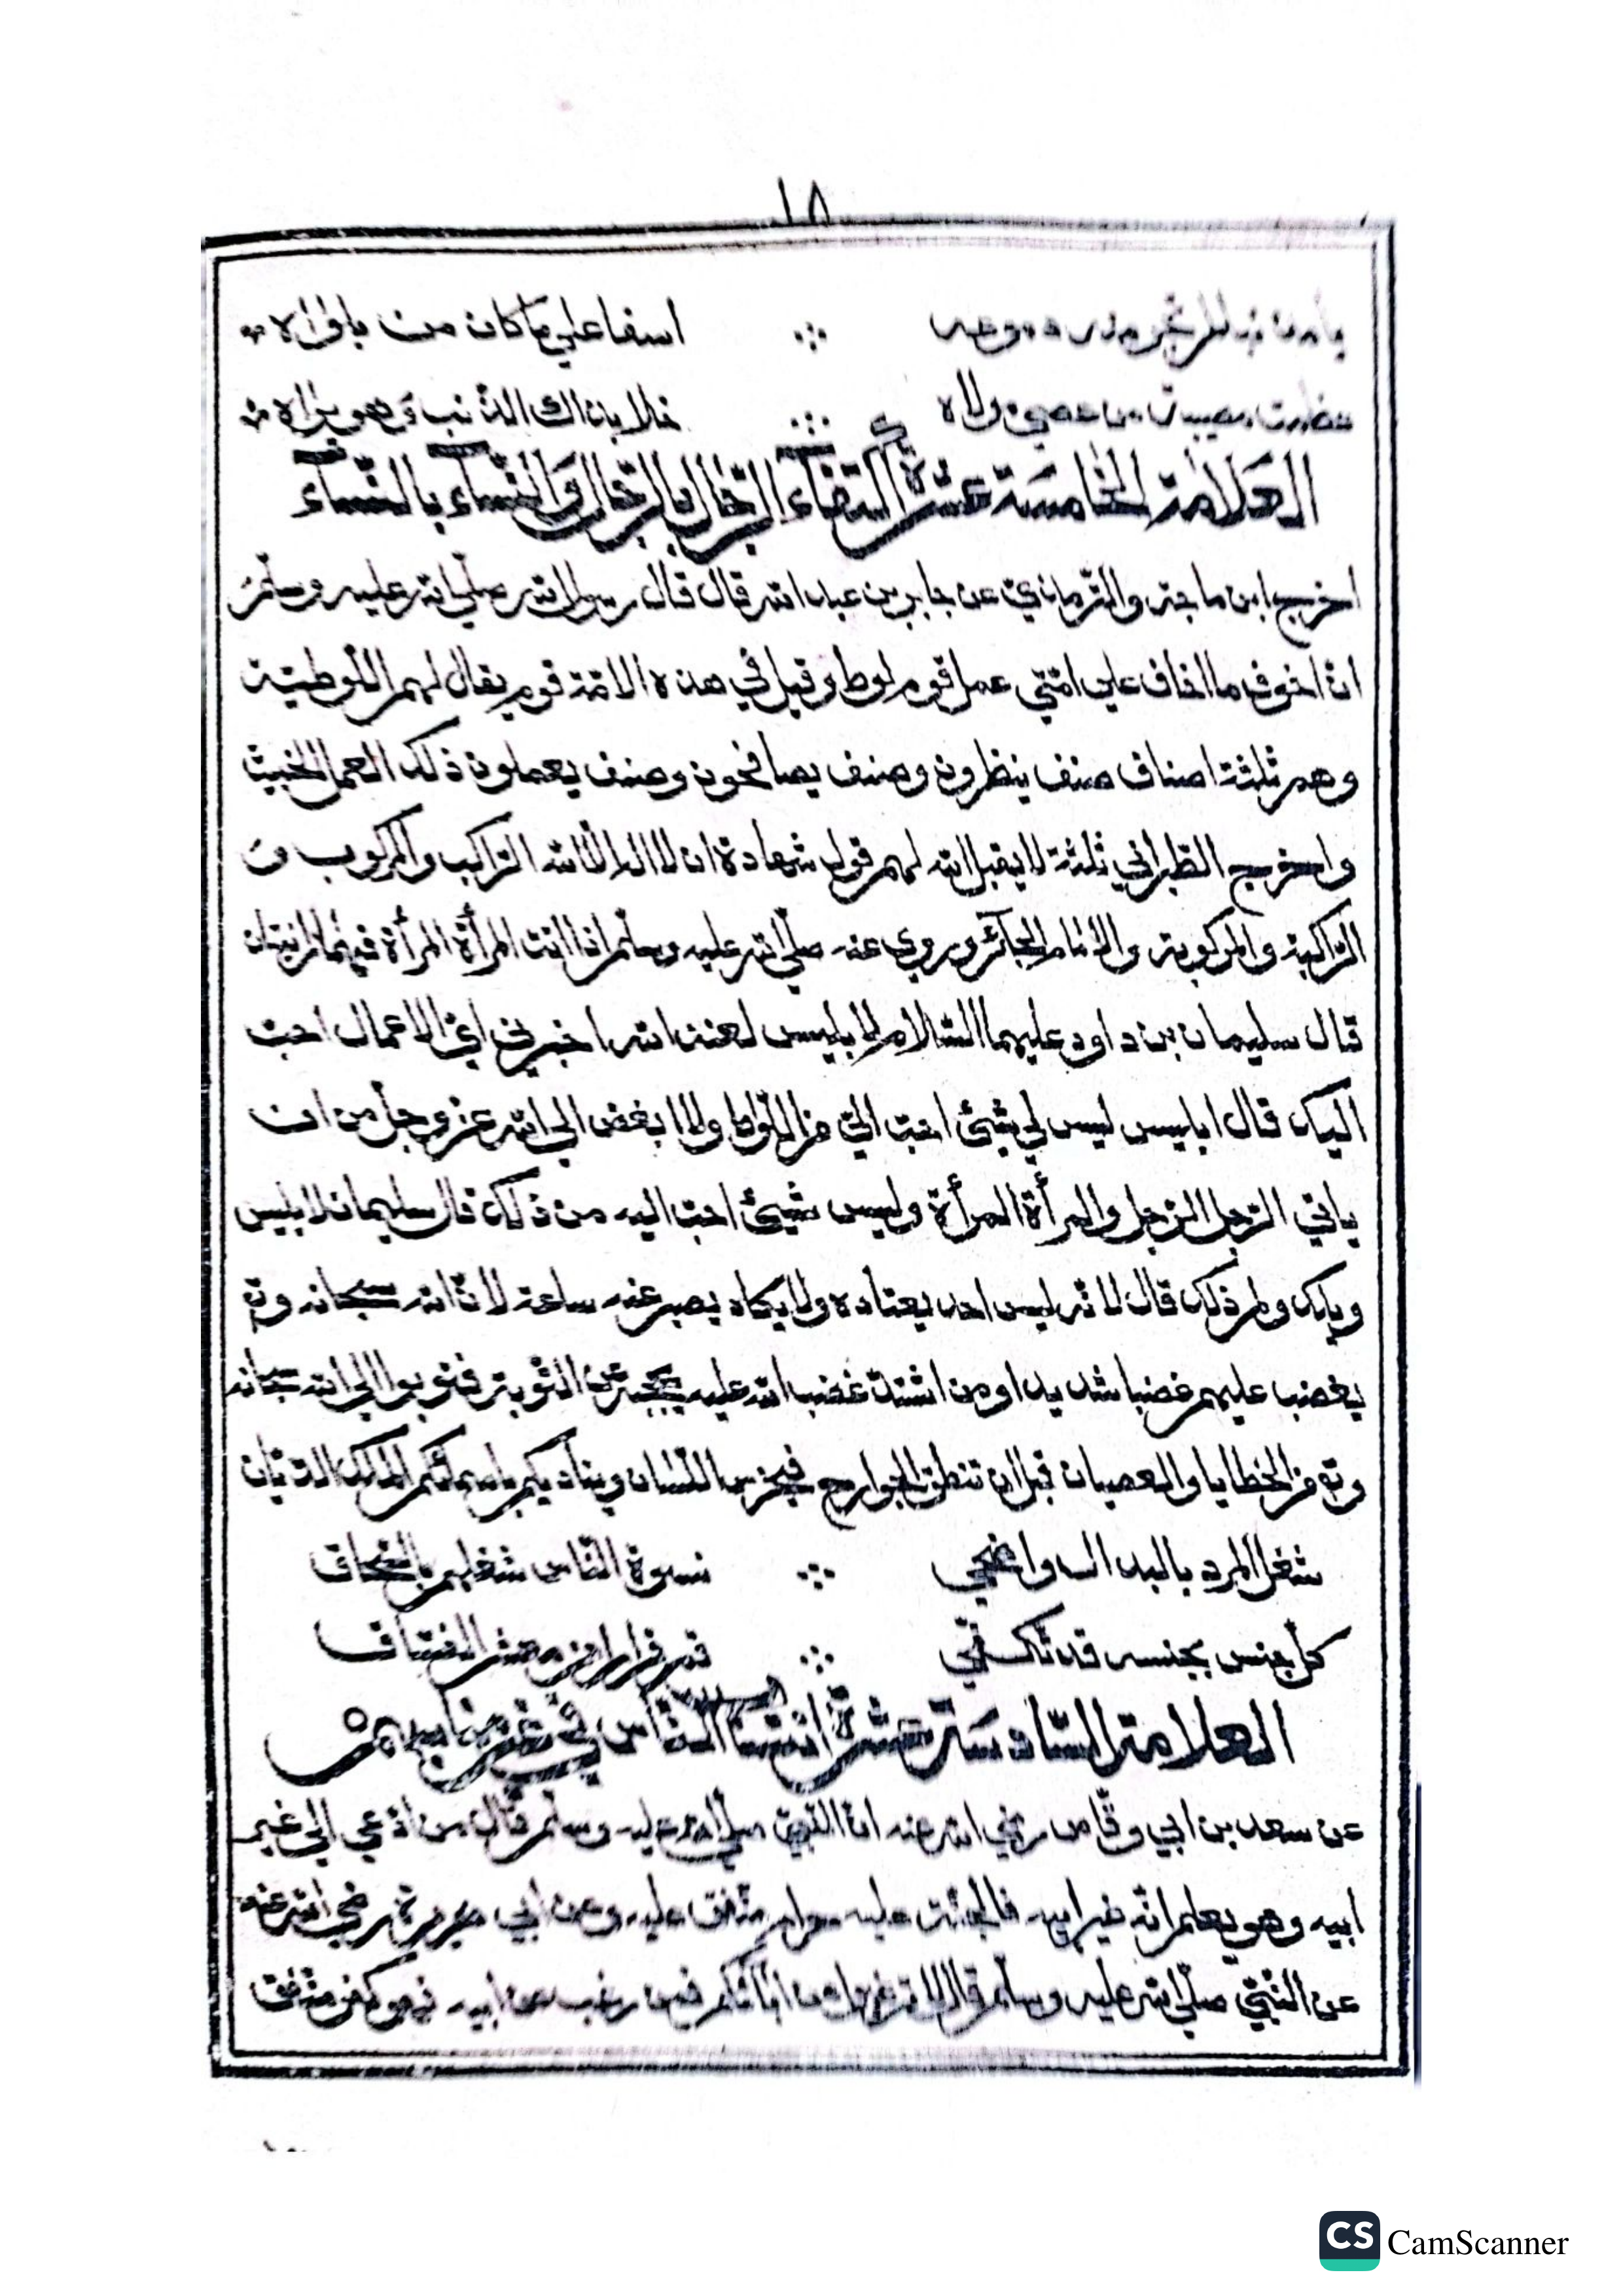 ١٨
اسفا علي ما كان من بلواه
عظمت مصيبات من عصي مولاه خلا بذاك الذنب وهو يراه
العلامة الخامسة عشرة اكتفاء الرّجال بالرّجال والنّساء بالنّساء
اخرج ابن ماجه والتّرمذيّ عن جابر بن عبد الله قال قال رسول الله صلّي الله عليه وسلّم
ان اخوف ما اخاف علي امّتي عمل قوم لوط وقيل في هذه الامّة قوم يقال لهم اللّوطيّة
وهم ثلثة اصناف صنف ينظرون وصنف يصافحون وصنف يعملون ذلك العمل الخبيث
واخرج الطبراني ثلثة لا يقبل الله لهم قول شهادة ان لا اله الّا الله الرّاكب والمركوب و
الرّاكبة والمركوبة والامام الجائر وروي عنه صلّي الله عليه وسلّم اذا اتت المرأة المرأة فهما زانيتان
قال سليمان بن داود عليهما السّلام لابليس لعنه الله اخبرني ايّ الاعمال احبّ
اليك قال ابليس ليس لي شيئ احبّ اليّ من اللّواط ولا ابغض الي الله عز وجل من ان
ياتي الرّجل الرّجل والمرأة المرأة وليس شيئ احبّ اليه من ذلك قال سليمان لابليس
ويلك ولم ذلك قال لانّه ليس احد يعتاده ولا يكاد يصبر عنه ساعة لانّ الله سبحانه وتع
يغضب عليهم غضبا شديدا ومن اشتدّ غضب الله عليه يحجبه عن التّوبة فتوبوا الي الله سبحانه
وتع من الخطايا والعصيان قبل ان تنطق الجوارح فيخرس اللّسان ويناديكم باسمائكم الملك الدّيّان
شغل المرد بالبدال واضحي نسوة النّاس شغلهم بالسّحاق
كلّ جنس بجنسه قد تكفّي
العلامة السّادسة عشرة انتساب النّاس في غير مناسبهم
عن سعد بن ابي وقّاص رضي الله عنه انّ النّبيّ صلّي الله عليه وسلّم قال من ادّعي الي غير
ابيه وهو يعلم انّه غير ابيه فالجنّة عليه حرام متّفق عليه وعن ابي هريرة رضي الله عنه
عن النّبيّ صلّي الله عليه وسلّم قال لا ترغبوا عن آبائكم فمن رغب عن ابيه فهو كفر متّفق
CS CamScanner